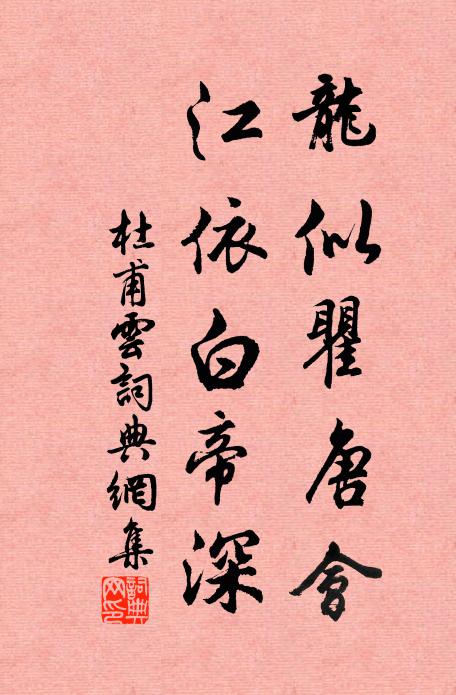 龍似瞿唐會
江依白帝深
杜甫雲詞典網集
詞典網印